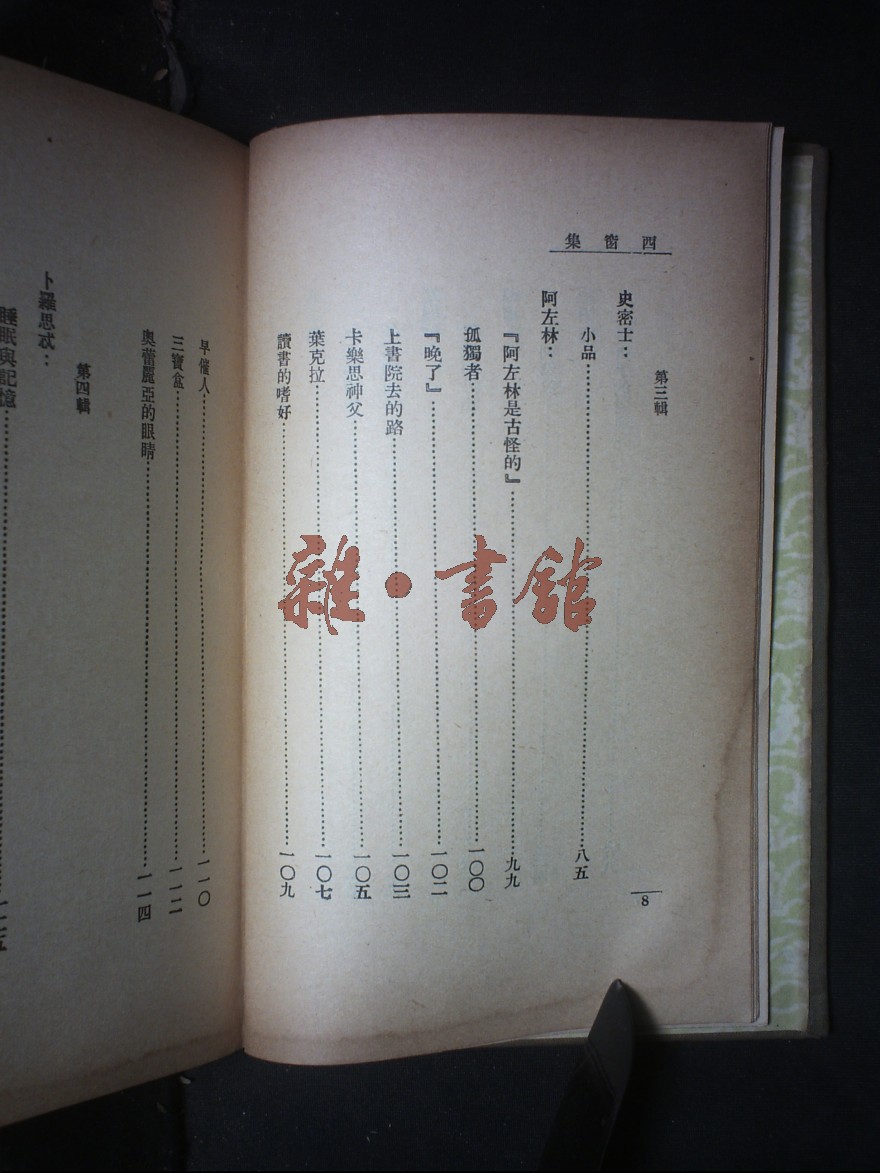 西窗集
第三輯
史密士：
小品……八五
阿左林：
『阿左林是古怪的』……九九
孤獨者……一〇〇
『晚了』……一〇二
上書院去的路……一〇三
卡樂思神父……一〇五
葉克拉……一〇七
讀書的嗜好……一〇九
8
早催人……一一〇
三寶盒……一一二
奧蕾麗亞的眼睛……一一四
第四輯
卜羅思忒：
睡眠與記憶……一二五
雜·書館